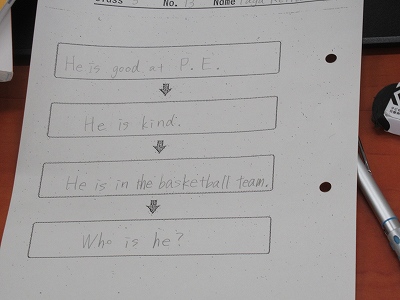 Class 3 No. 13 Name
He is good at P.E.
He is kind.
He is in the basketball team.
Who is he?